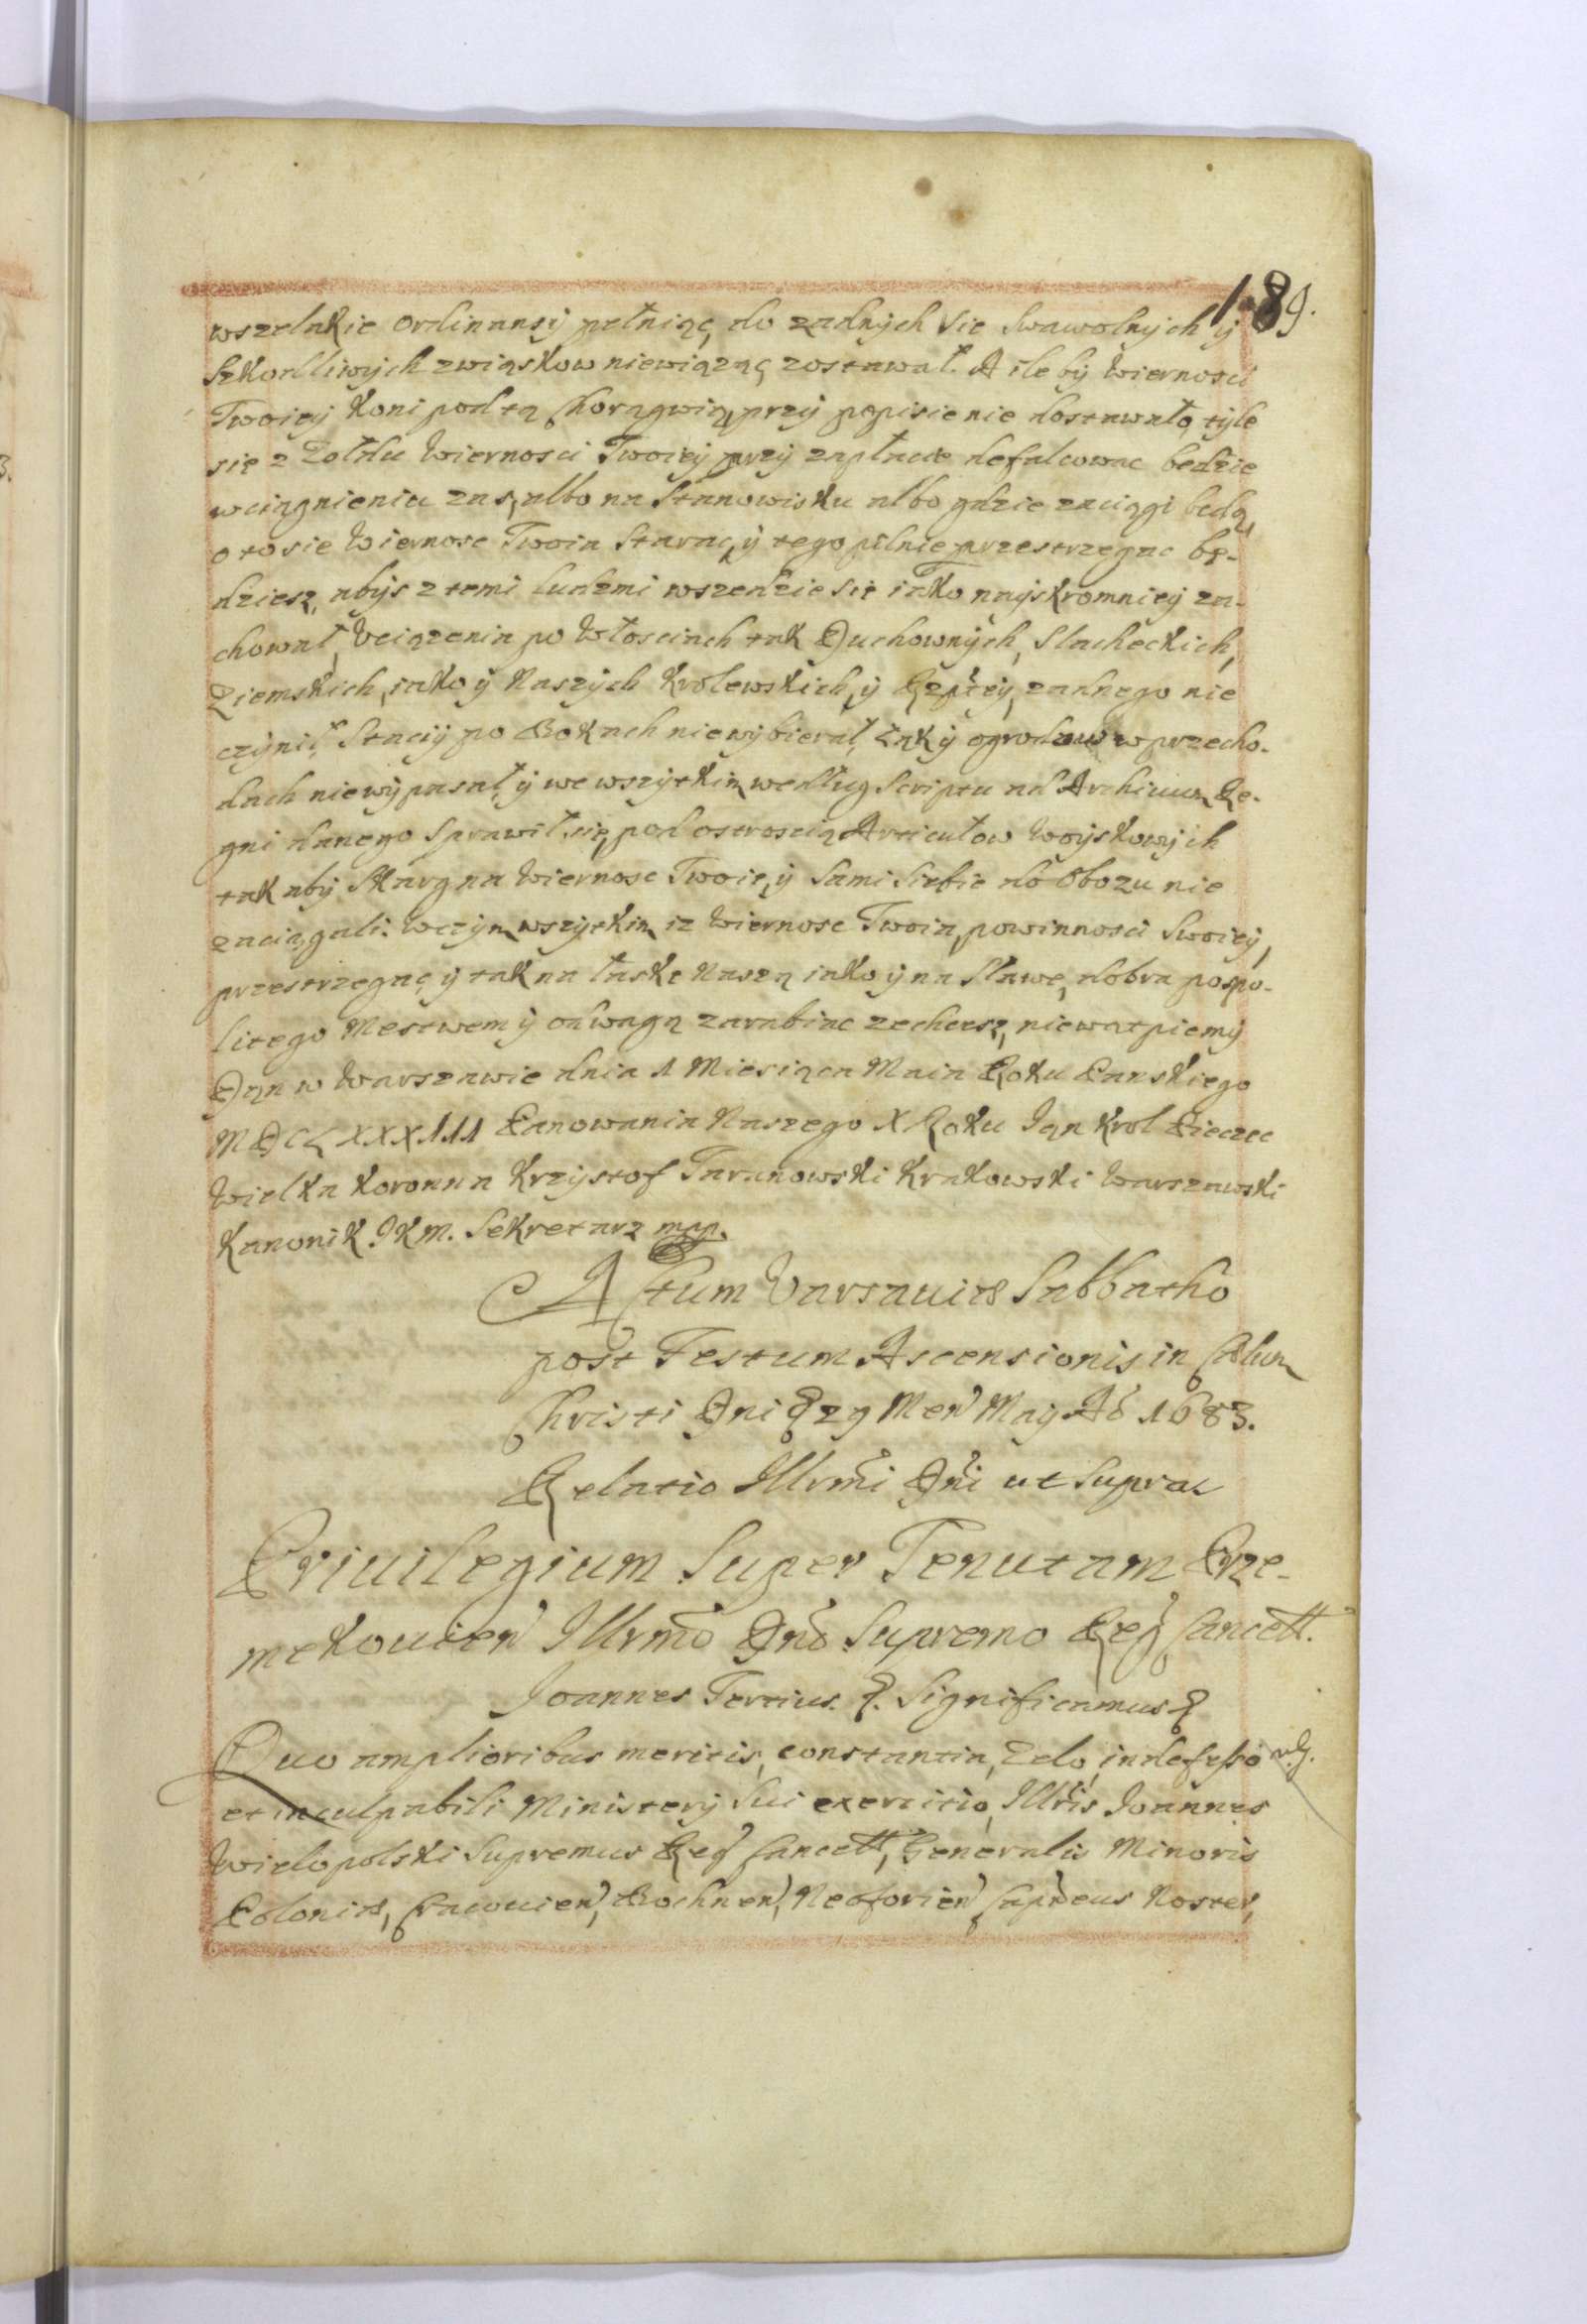 189.
wszelakie ordinansÿ pełniąc, do zadnÿch sie swawolnÿch ÿ
Szkodliwÿch zwiąskow niewiążąc zostawał. A ile bÿ Wiernosci
Twoieÿ koni pod tą Chorągwią, przÿ popisie nie dostawało, tÿle
się z Zołdu Wiernosci Twoieÿ przÿ zapłacie defalcowac bedzie
w ciągnieniu zas, albo na Stanowisku albo gdzie zaciągi bedą,
o to sie Wiernosc Twoia starac, ÿ tego pilnie przestrzegac bę-
dziesz, abÿs z temi ludzmi wszedzie sie iako naÿskromnieÿ za-
chował, Vciązenia po Włosciach tak Duchownÿch, Slacheckich,
Ziemskich, iako ÿ Naszÿch Krolewskich, ÿ Rzpteÿ, zadnego nie
czÿnił, Stacÿi po Bokach nie wÿbierał, Łąk ÿ ogrodow w przecho-
dach nie wÿpasał, ÿ we wszÿtkim według Scriptu ad Archivum Re-
gni danego Sprawił się, pod ostroscią Articułow Woÿskowÿch
tak abÿ Skarg na Wiernosc Twoię, ÿ sami Siebie do Obozu nie
zaciągali. W czÿm wszÿtkim iz Wiernosc Twoia, powinnosci Swoieÿ,
przestrzegac, ÿ tak na łaskę Naszą iako ÿ na Sławę, dobra pospo-
litego Mestwem ÿ odwagą zarabiac zechcesz, niewątpiemÿ
Dąn w Warszawie dnia 1 Miesiąca Maia Roku Panskiego
MDCLXXXIII Panowania Naszego X Roku Ian Krol Pieczec
Wielka Koronna Krzÿstof Taranowski Krakowski Warszawski
Kanonik JKM. Sekretarz mpp.
Actum Varsaviæ Sabbatho
post Festum Ascensionis in Cælum
Christi Dni 29 Men Maÿ Ao 1683.
Relatio Illrmi Dni ut Supra
Privilegium Super Tenutam Prze-
mekovien Illrmo Dno Supremo Reg Cancell.
Joannes Tertius. Significamus
Quo amplioribus meritis, constantia, Zelo, indefesso
et inculpabili Ministerÿ Sui exercitio, Illris Joannes
Wielopolski Supremus Reg Cancell, Generalis Minoris
Poloniæ, Cracovien, Bochnen, Neoforien Capneus Noster,